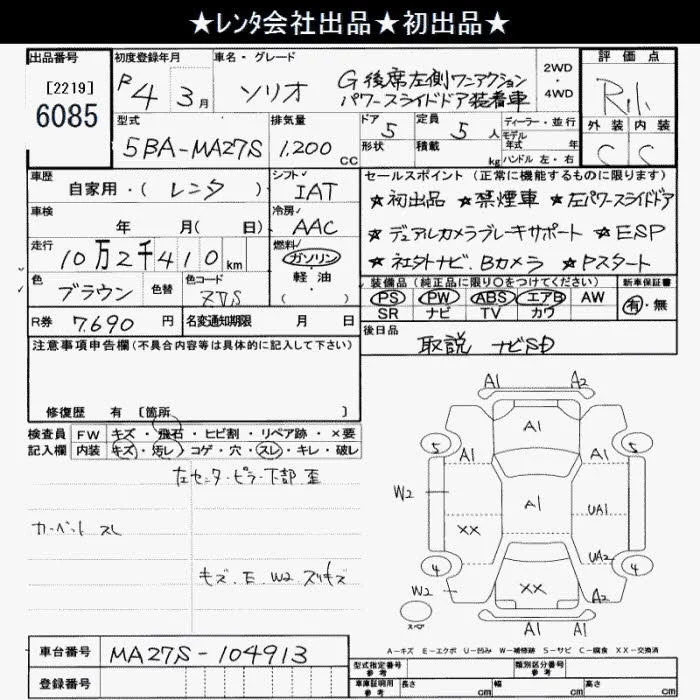 ★レンタ会社出品★初出品★
出品番号
[2219]
6085
初度登録年月
R4 3月
車名・グレード
ソリオ G 後席左側ワンアクション
パワースライドドア装着車
2WD
・
4WD
評価点
R1
外装 内装
C C
型式
5BA-MA27S
排気量
1,200 CC
ドア 5
形状
定員 5人
積載 kg
ディーラー・並行
モデル
年式 年
ハンドル 左・右
車歴
自家用・(レンタ)
シフト
IAT
車検
年 月(日)
冷房
AAC
走行
10万2千410km
燃料
ガソリン
・軽・油
色
ブラウン
色替
色コード
R券 7,690円
名変通知期限 月 日
セールスポイント (正常に機能するものに限ります)
★初出品 ★禁煙車 ★左パワースライドドア
★デュアルカメラブレーキサポート ★ESP
★社外ナビ.Bカメラ ★Pスタート
装備品 (純正品に限り○をつけてください)
PS PW ABS エアB AW
SR ナビ TV カワ
新車保証書
有・無
後日品
取説 ナビSD
注意事項申告欄(不具合内容等は具体的に記入して下さい)
修復歴 有 [箇所 ]
検査員
記入欄
FW キズ・飛石・ヒビ割・リペア跡・×要
内装 キズ・汚レ・コゲ・穴・スレ・キレ・破レ
左センターピラー下部 歪
カーペット スレ
キズ.E.W2 スリキズ
A1 A2
5 A1 A1 A1 5
W2 A1 UA1
XX
4 UA2 4
W2 XX A2
スペア
A1 A1
A-キズ E-エクボ U-凹み W-補修跡 S-サビ C-腐食 XX-交換済
車台番号 MA27S-104913
登録番号
型式指定番号
参考
類別区分番号
参考
車庫証明用
参考
長さ cm 幅 cm 高さ cm